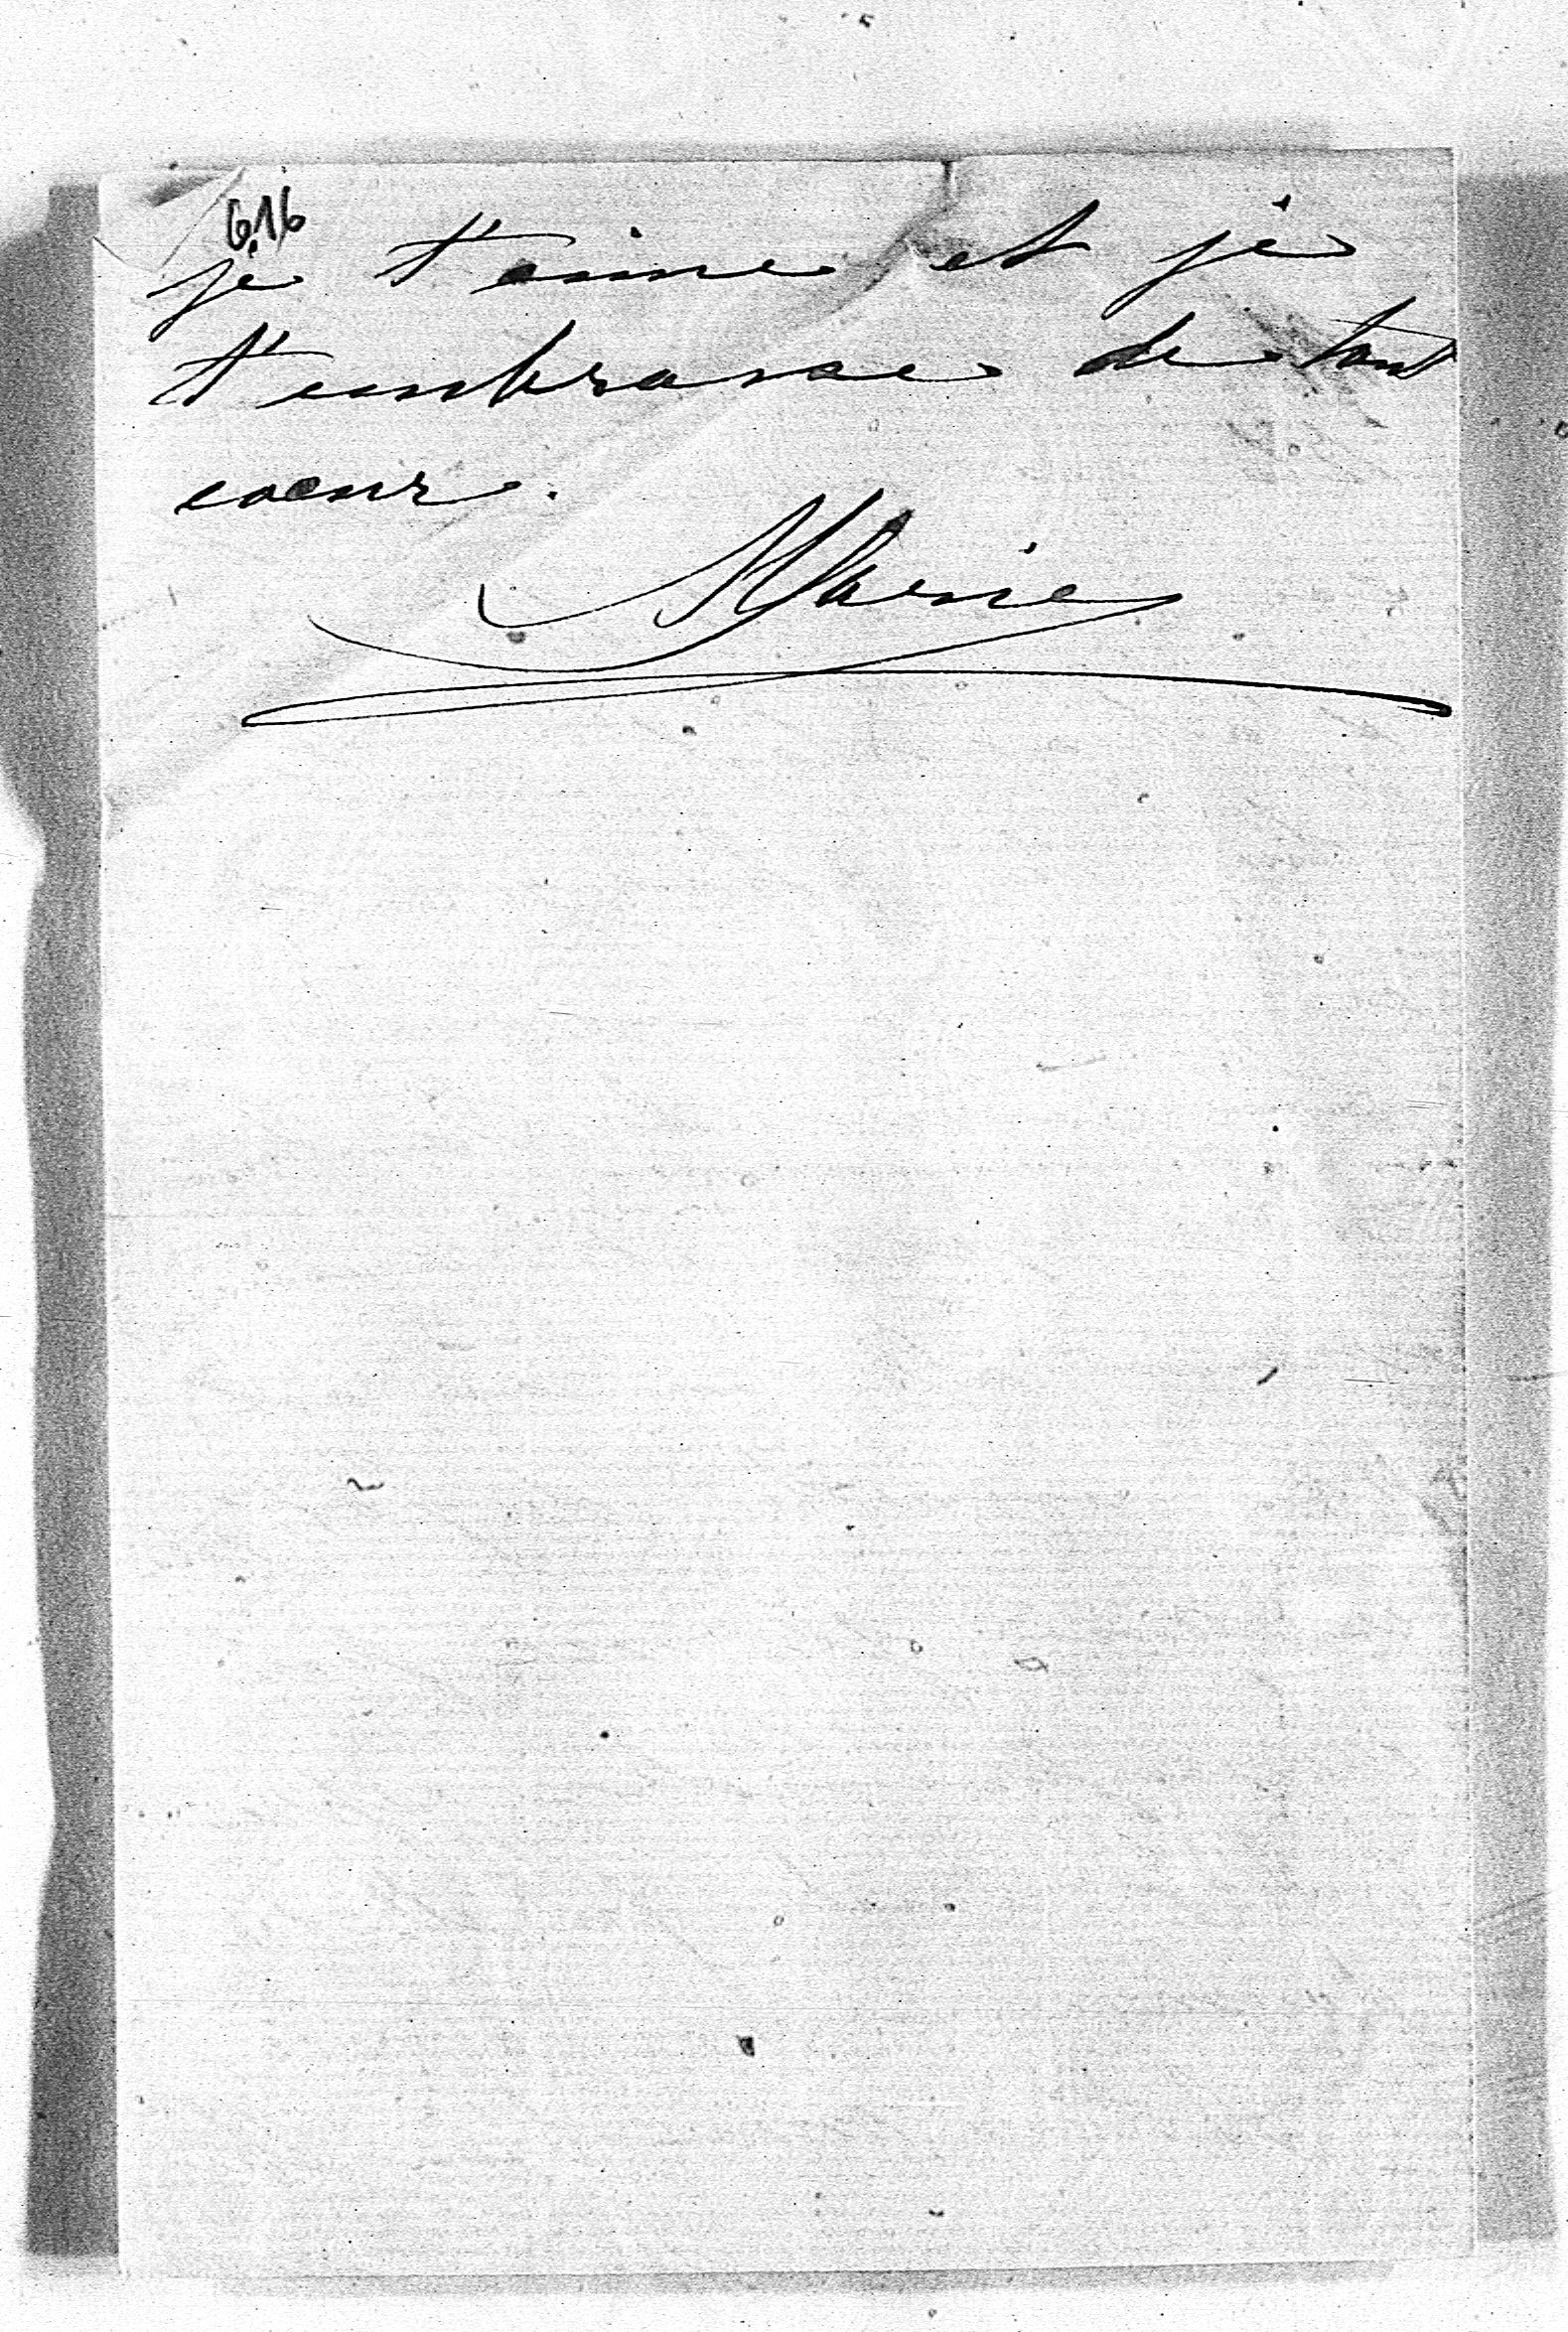 616
je t'aime et je
t'embrasse de tout
coeur.
Marie